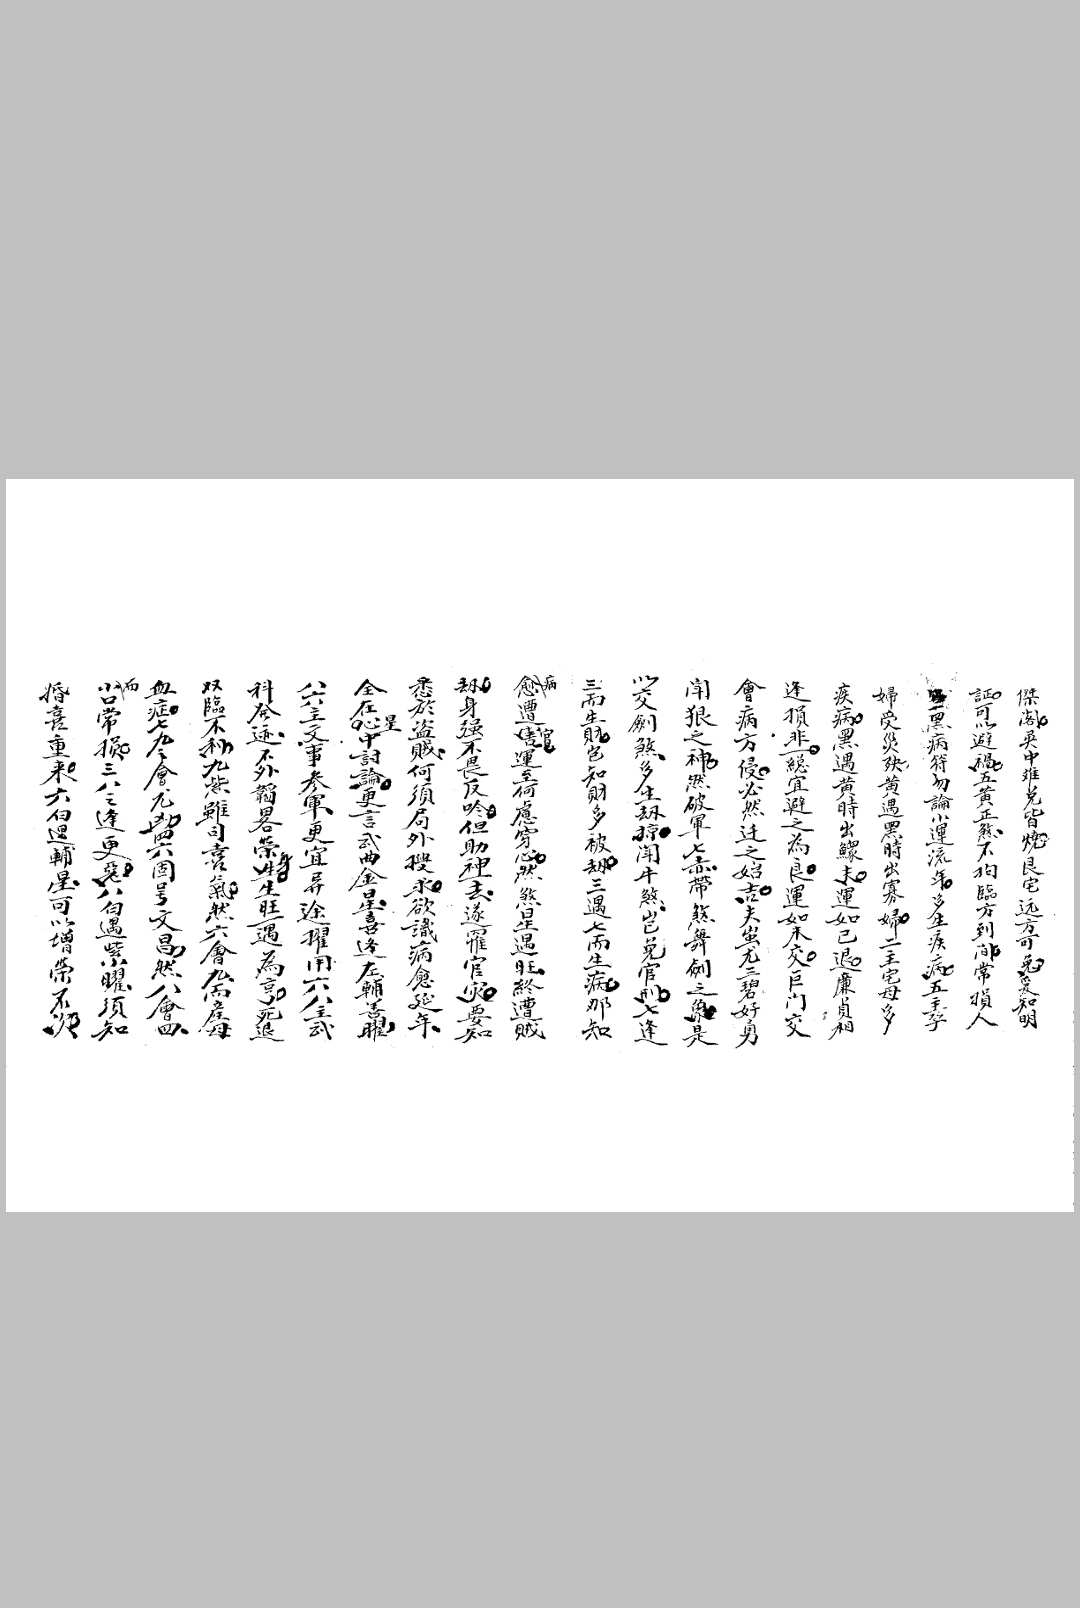 傑閣英中难兑皆燒艮宅远方可免爰知明
証可以避禍五黄正煞不拘臨方到間常損人
二黑病符勿論小運流年多生疾病五主孕
婦受災殃黄遇黑時出寡婦二主宅母多
疾病黑遇黄時出鰥夫運如已退廉貞相
逢損非一総宜避之為良運如未交巨门交
會病方侵必然迁之始吉夫蚩尤三碧好勇
閗狠之神然破軍七赤帶煞舞劍之象是
以交劍煞多生刼掠閗牛煞岂免官刑七逢
三而生財岂知財多被刼三遇七而生病那知
病愈遭官害運至何慮穷心然煞星遇旺終遭賊
刼身强不畏反吟但助神去遂罹官灾要知
悉於盗賊何須局外搜求欲識病愈延年
全在心中討論更言武曲金星喜逢左輔善曜
八六主文事参軍更宜异途擢用六八主武
科發迹不外韜畧荣身生旺一遇為亨死退
双臨不利九紫雖司喜氣然六會九而產母
血症七九之會尤凶四六固号文昌然八會四
而小口常損三八之逢更惡八白遇紫曜須知
婚喜重来六白遇輔星可以增荣不次